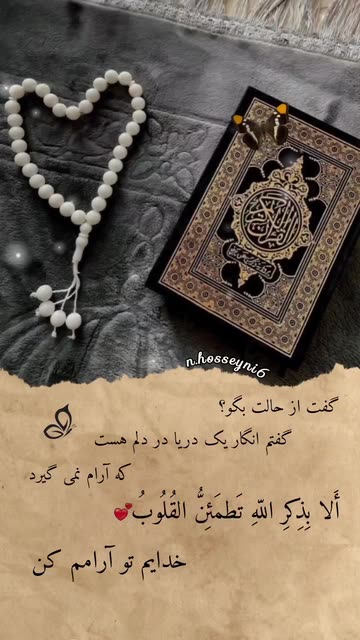 n.hosseyni6
گفت از حالت بگو؟
گفتم انگار یک دریا در دلم هست
که آرام نمی گیرد
أَلا بِذِكِرِ اللّهِ تَطمَئِنُّ القُلُوبُ💕
خدایم تو آرامم کن